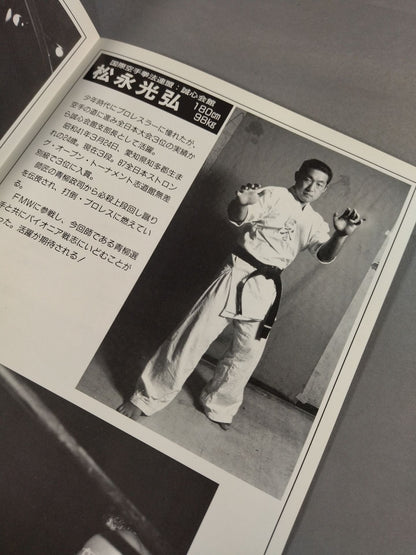 国際空手拳法連盟:誠心会館
松永光弘
180cm
98kg
少年時代にプロレスラーに憧れたが、
空手の道に進み全日本大会3位の実績か
ら誠心会館支部長として活躍。
昭和41年3月24日、愛知県知多郡生ま
れの24歳。現在3段。87全日本ストロン
グ・オープン・トーナメント志道館無差
別級で3位に入賞。
師匠の青柳政司から必殺上段回し蹴り
を伝授され、打倒・プロレスに燃えてい
る。
FMWに参戦し、今回師である青柳選
手と共にパイオニア戦志にいどむことが
った。活躍が期待される!